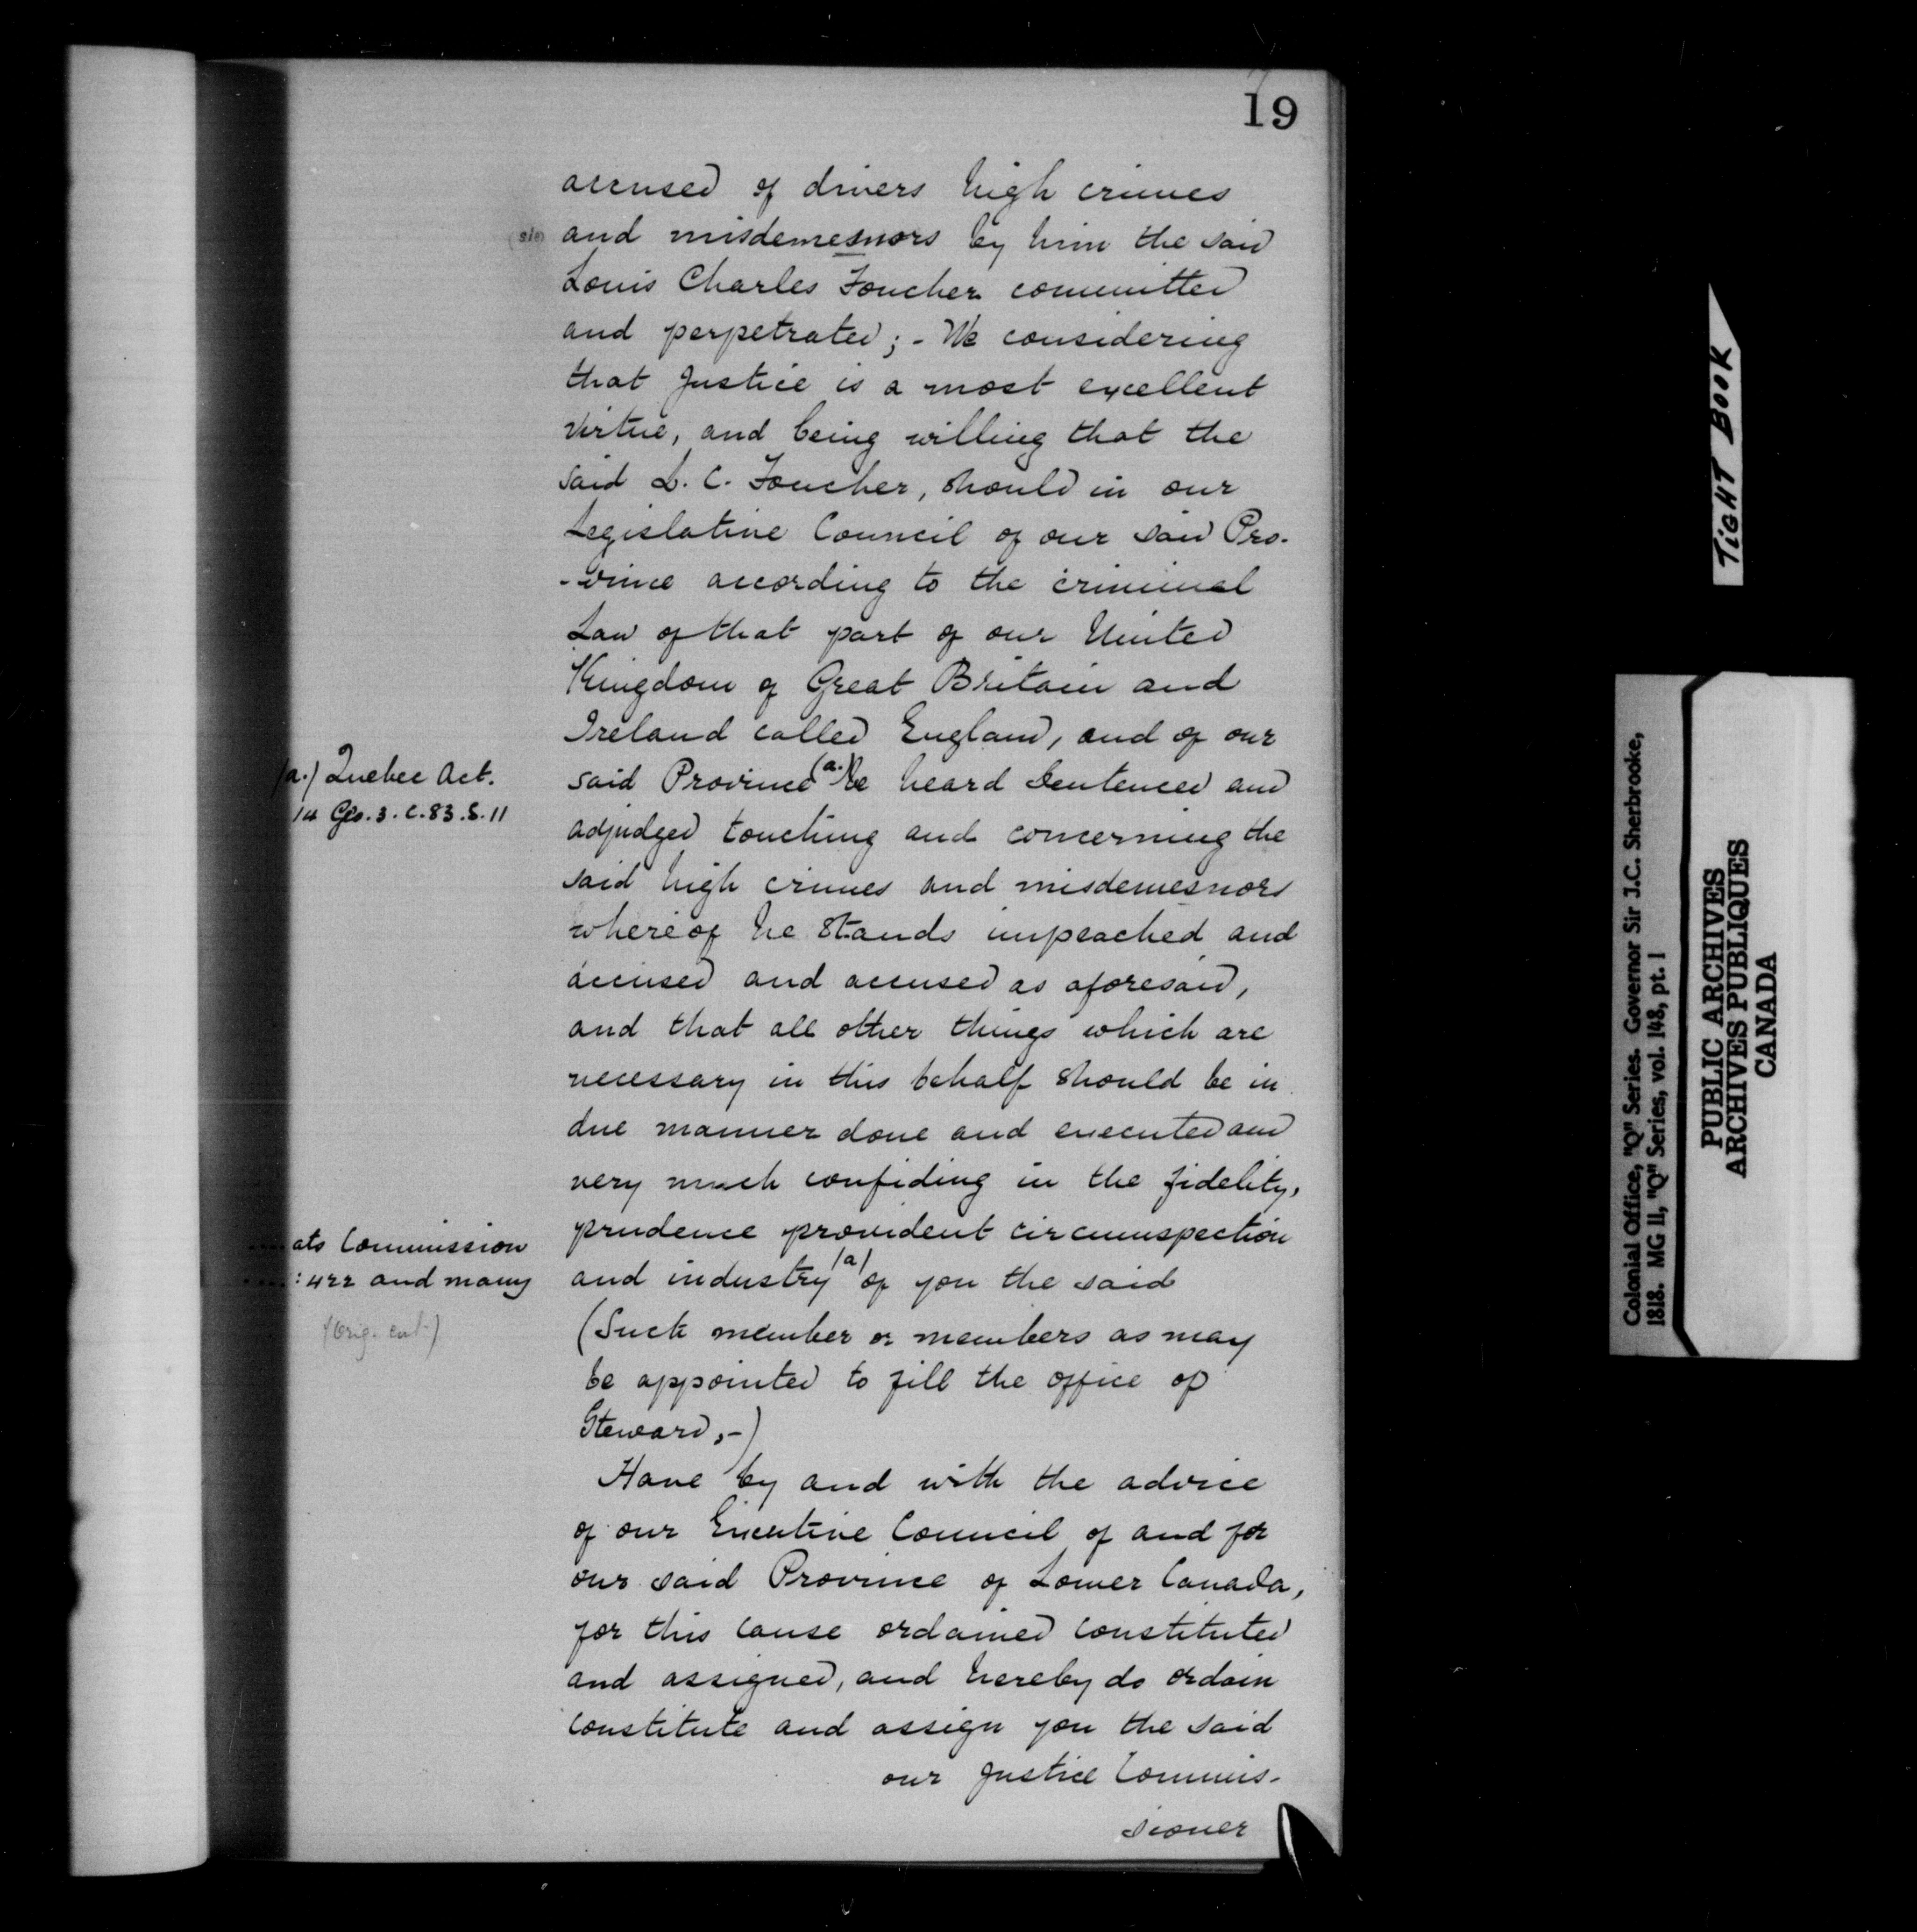 19
accused of divers high crimes
(sic) and misdemesnors by him the said
Louis Charles Foucher committed
and perpetrated; - We considering
that Justice is a most excellent
virtue, and being willing that the
said L. C. Foucher, should in our
Legislative Council of our said Pro-
-vince according to the criminal
Law of that part of our United
Kingdom of Great Britain and
Ireland called England, and of our
(a.) Quebec Act.
14 Geo. 3. C. 83. S. 11
said Province (a.) be heard Sentenced and
adjudged touching and concerning the
said high crimes and misdemesnors
whereof he Stands impeached and
accused and accused as aforesaid,
and that all other things which are
necessary in this behalf should be in
due manner done and executed and
very much confiding in the fidelity,
prudence provident circumspection
ats Commission
: 422 and many
(Orig. cut.)
and industry (a) of you the said
(Such member or members as may
be appointed to fill the office of
Steward, -)
Have by and with the advice
of our Executive Council of and for
our said Province of Lower Canada,
for this cause ordained constituted
and assigned, and hereby do ordain
constitute and assign you the said
our Justice Commis-
sioner
TIGHT BOOK
Colonial Office, "Q" Series. Governor Sir J.C. Sherbrooke,
1818. MG 11, "Q" Series, vol. 148, pt. 1
PUBLIC ARCHIVES
ARCHIVES PUBLIQUES
CANADA